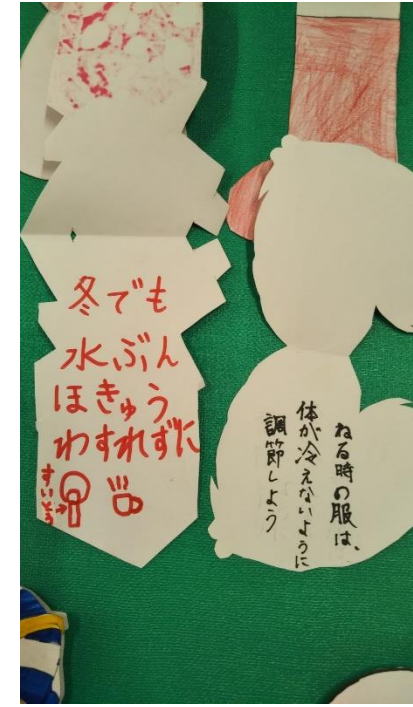 冬でも
水ぶん
ほきゅう
わすれずに
すいとう
ねる時の服は、
体が冷えないように
調節しよう